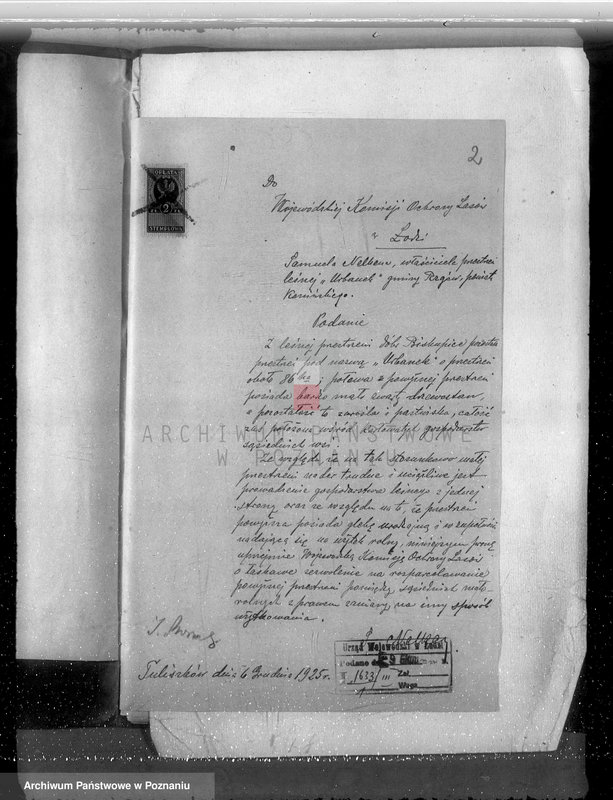 2
OPŁATA
2
STEMPLOWA
Do
Wojewódzkiej Komisji Ochrony Lasów
w Łodzi
Samuela Nelkena, właściciela przestrzeni
leśnej „Urbanek" gminy Rzgów, powiat
Koniński.
Podanie
Z leśnej przestrzeni dóbr Biskupice
pod nazwą „Urbanek" o przestrzeni
około 86 ha; połowa z powyższej przestrzeni
posiada bardzo mało zwarty drzewostan,
a pozostałość to zarośla i pastwiska, całość
zaś położona wśród gospodarstw
sąsiednich wsi.
Ze względu że na tak stosunkowo małej
przestrzeni nader trudne i uciążliwe jest
prowadzenie gospodarstwa leśnego z jednej
strony, oraz ze względu na to, że przestrzeń
powyższa posiada glebę urodzajną i w zupełności
nadającą się na użytek rolny, niniejszym proszę
uprzejmie Wojewódzką Komisję Ochrony Lasów
o łaskawe zezwolenie na rozparcelowanie
powyższej przestrzeni pomiędzy sąsiednich mało-
rolnych z prawem zamiany na inny sposób
użytkowania.
Tuliszków dnia 6 Grudnia 1925 r.
Urząd Wojewódzki w Łodzi
Podano dn. 9
1633/III Zał.
ARCHIWUM PAŃSTWOWE
W POZNANIU
Archiwum Państwowe w Poznaniu